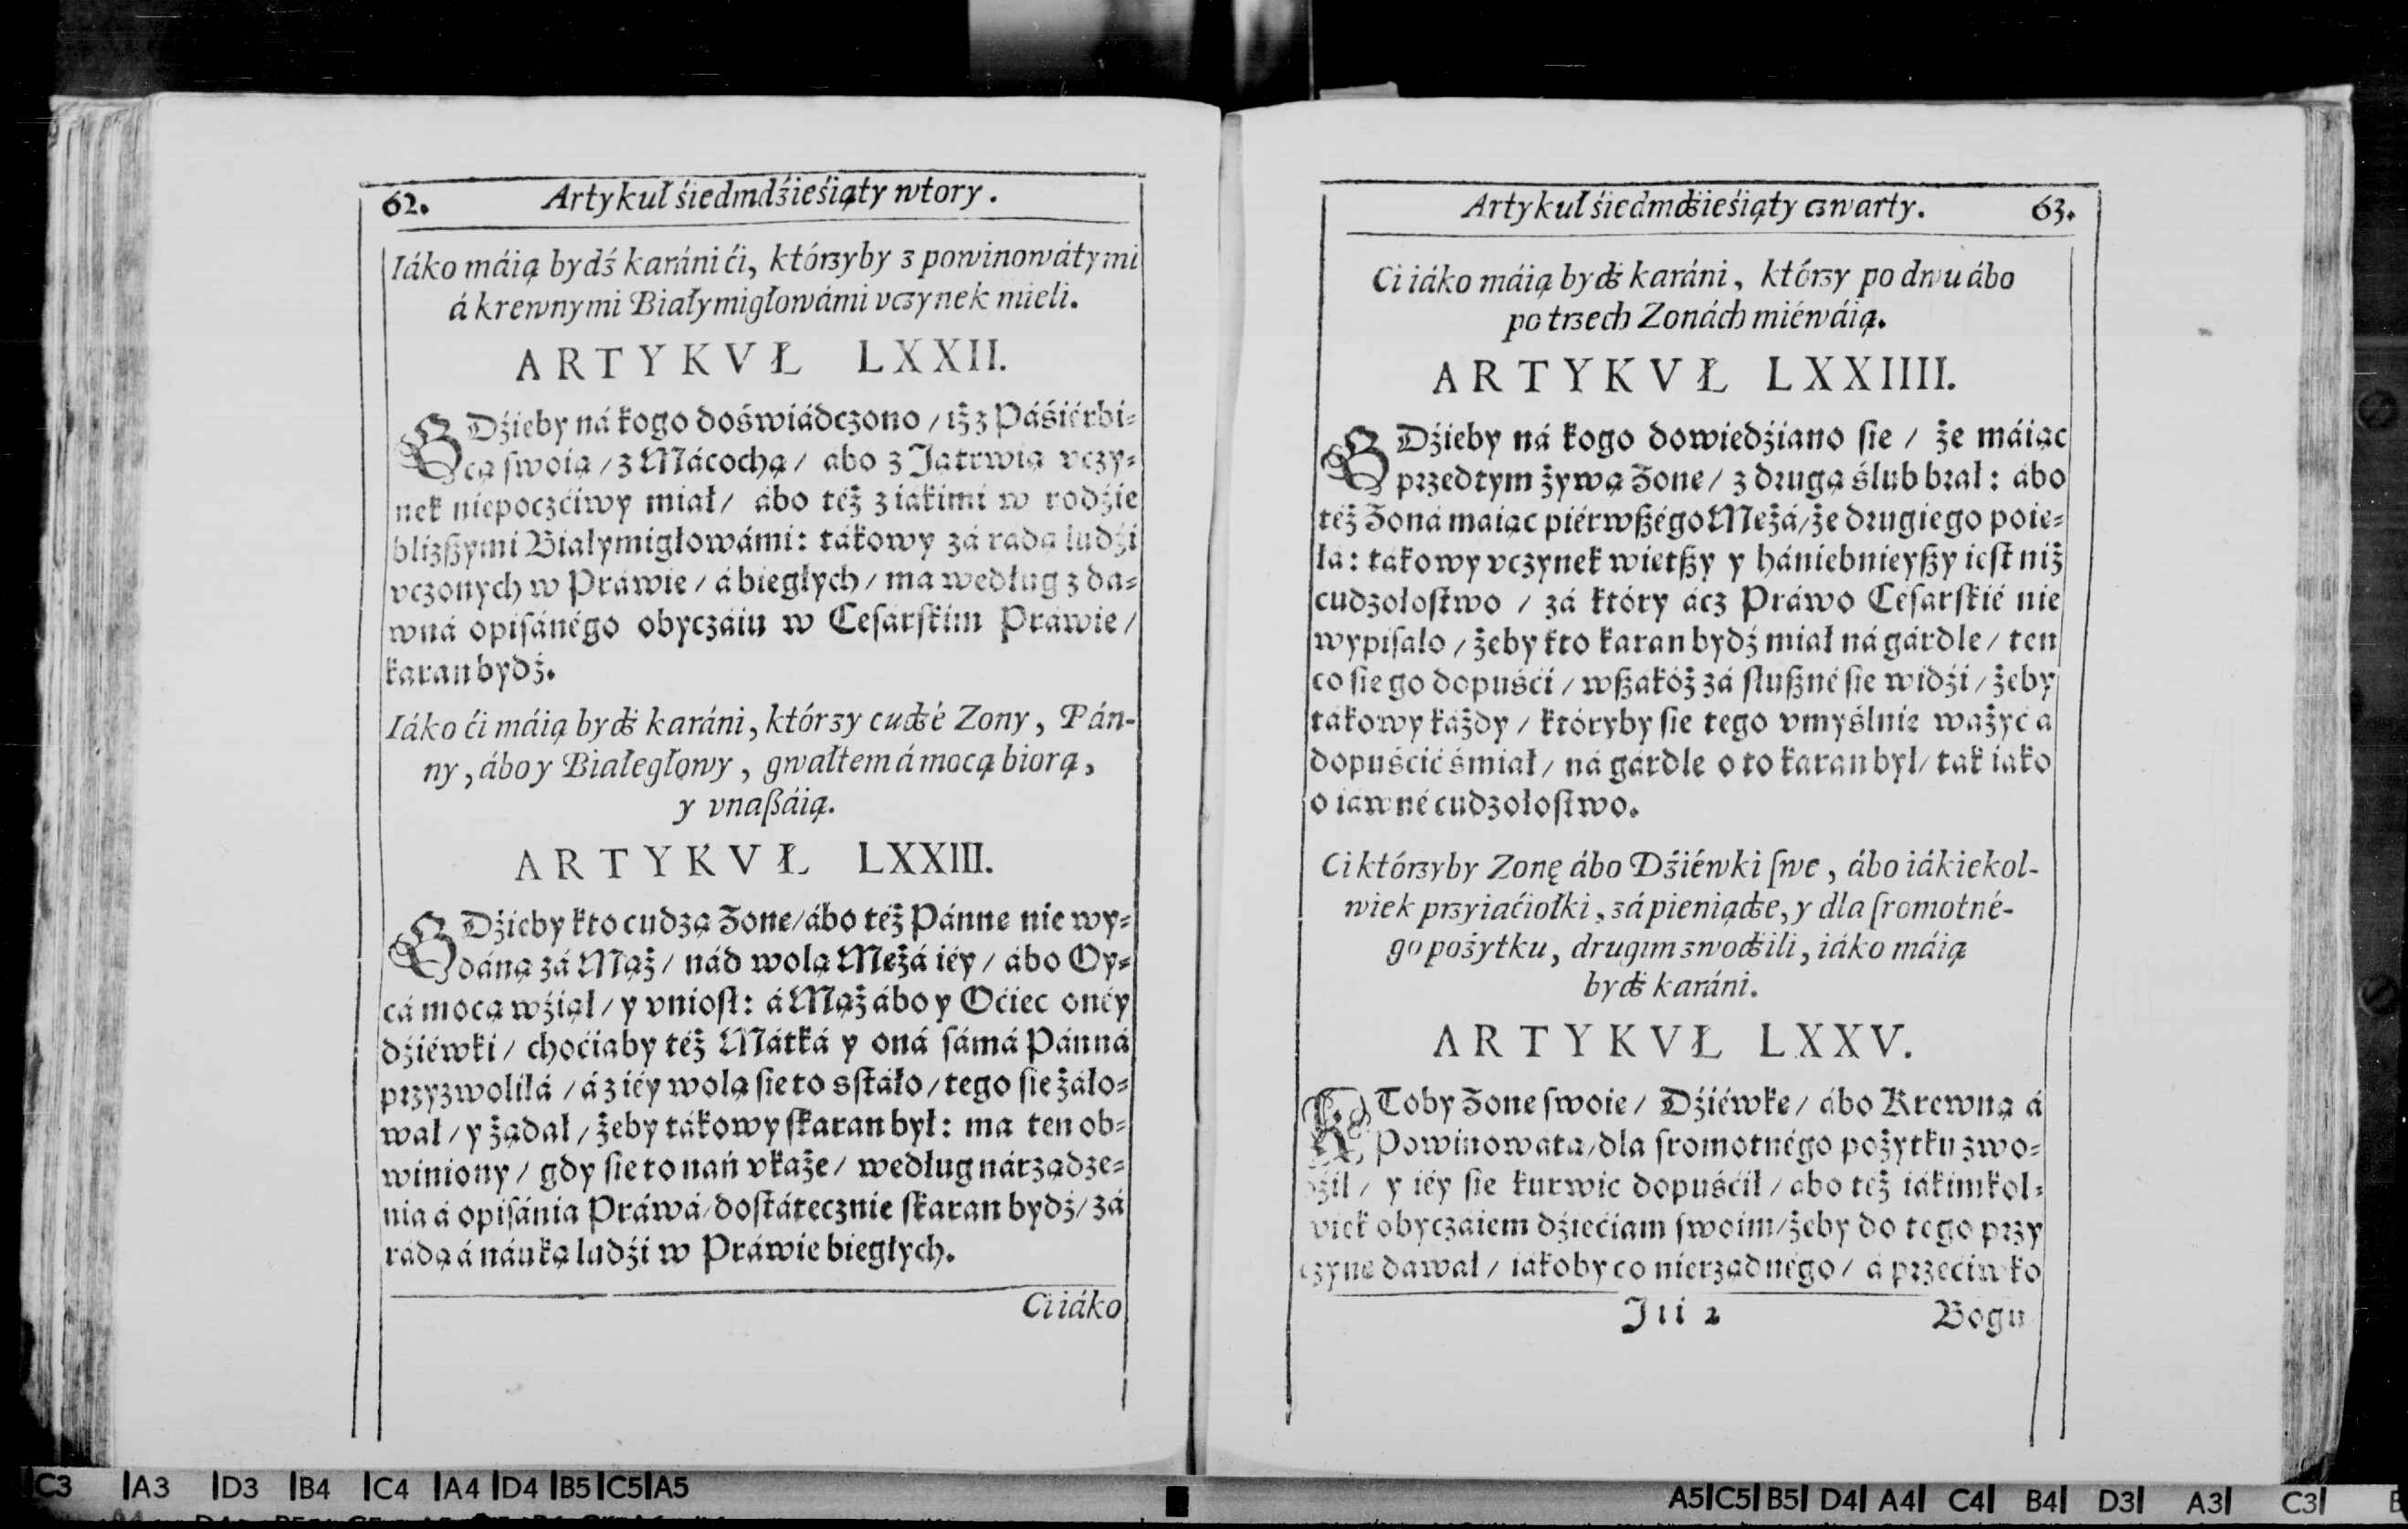 62. Artykuł śiedmdźieśiąty wtory.
Iáko máią bydź karáni ći, którzyby z powinowátymi
á krewnymi Białymigłowámi vczynek mieli.
ARTYKVŁ LXXII.
GDźieby ná kogo doświádczono / iż z Páśiérbi-
cą ſwoią / z Mácochą / abo z Jątrwią vczy-
nek niepoczćiwy miał / ábo też z iákimi w rodźie
blizßymi Białymigłowámi: tákowy zá radą ludźi
vczonych w Práwie / á biegłych / ma według z da-
wná opiſánégo obyczáiu w Ceſárſkim Práwie /
karan bydź.
Iáko ći máią bydź karáni, którzy cudzé Zony, Pán-
ny, ábo y Białegłowy, gwałtem á mocą biorą,
y vnaßáią.
ARTYKVŁ LXXIII.
GDźieby kto cudzą Żone / ábo też Pánne nie wy-
dáną zá Mąż / nád wolą Mężá iéy / ábo Oy-
cá mocą wźiął / y vniosł: á Mąż ábo y Oćiec onéy
dźiéwki / choćiaby też Mátká y oná ſámá Pánná
przyzwolilá / á z iéy wolą ſie to sſtáło / tego ſie żáło-
wał / y żądał / żeby tákowy ſkaran był: ma ten ob-
winiony / gdy ſie to nań vkaże / według nárządze-
nia á opiſánia Práwá / doſtátecznie ſkaran bydź / zá
rádą á náuką ludźi w Práwie biegłych.
Ci iáko
Artykuł śiedmdźieśiąty czwarty. 63.
Ci iáko máią bydź karáni, którzy po dwu ábo
po trzech Zonách miéwáią.
ARTYKVŁ LXXIIII.
GDźieby ná kogo dowiedźiano ſie / że máiąc
przedtym żywą Żone / z drugą ślub brał: ábo
też Żoná maiąc piérwßégo Mężá / że drugiego poię-
łá: tákowy vczynek więtßy y hániebnieyßy ieſt niż
cudzołoſtwo / zá który ácz Práwo Céſarſkié nie
wypiſało / żeby kto karan bydź miał ná gárdle / ten
co ſie go dopuśći / wßákóż zá ſłußné ſie widźi / żeby
tákowy káżdy / któryby ſie tego vmyślnie ważyć á
dopuśćić śmiał / ná gárdle o to karan był / ták iáko
o iáwné cudzołoſtwo.
Ci którzyby Zonę ábo Dźiéwki ſwe, ábo iákiekol-
wiek przyiaćiołki, zá pieniądze, y dla ſromotné-
go pożytku, drugim zwodźili, iáko máią
bydź karáni.
ARTYKVŁ LXXV.
KToby Żone ſwoię / Dźiéwke / ábo Krewną á
Powinowatą / dla ſromotnégo pożytku zwo-
dźił / y iéy ſie kurwić dopuśćił / abo też iákimkol-
wiek obyczáiem dźiećiam ſwoim / żeby do tego przy
czyne dawał / iákoby co nierządnégo / á przećiwko
Iii 2 Bogu
C3 A3 D3 B4 C4 A4 D4 B5 C5 A5
A5 C5 B5 D4 A4 C4 B4 D3 A3 C3